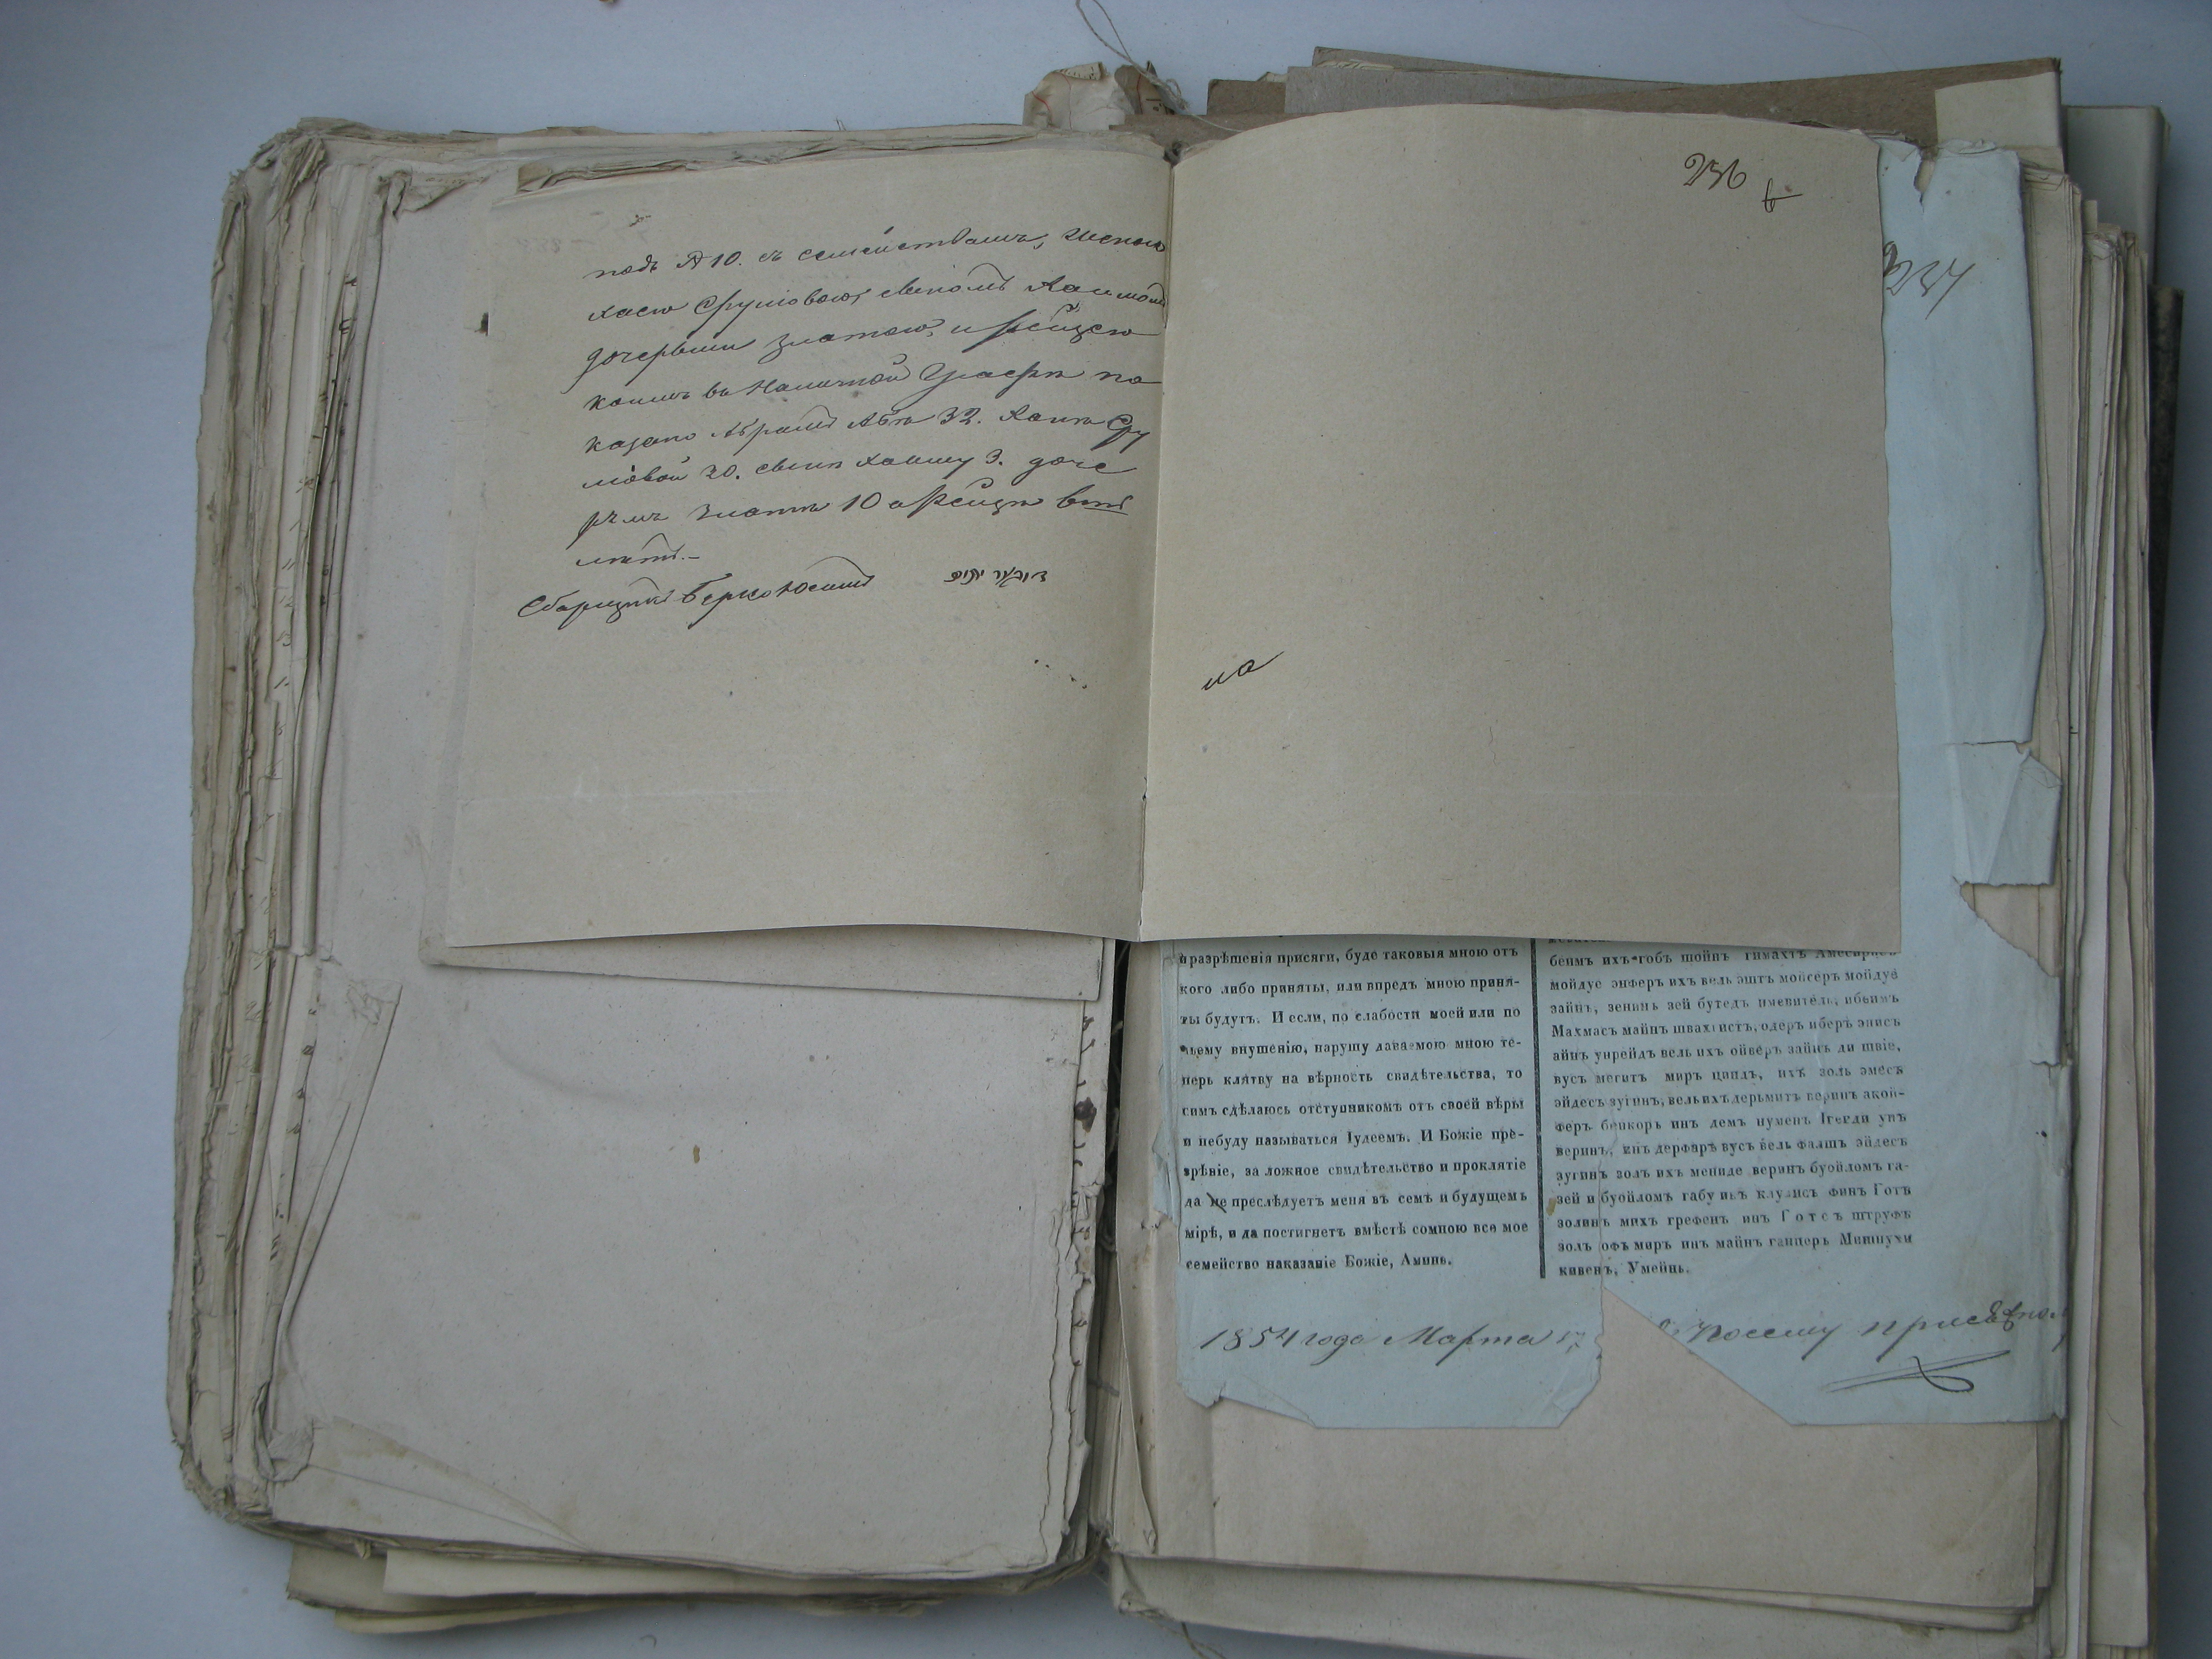 подъ № 10. съ семействомъ, женою
Хаею Сруловою, сыномъ Хаимомъ
дочерьми Златою, и Рейзею
коимъ въ Наличной Графѣ по
казано Абрамъ Аба 32. Хаиѣ Сру
ловой 20. сыну Хаиму 3. доче
рѣмъ Златѣ 10 а Рейзѣ 6ть
лѣтъ.–
Сборщикъ Берко Юсимъ
236
6
237
на
разрѣшенія присяги, буде таковыя мною отъ
кого либо приняты, или впредъ мною приня-
ты будутъ. И если, по слабости моей или по
чьему внушенію, нарушу даваемою мною те-
перь клятву на вѣрность свидѣтельства, то
симъ сдѣлаюсь отступникомъ отъ своей вѣры
и небуду называться Іудеемъ. И Божіе пре-
зрѣніе, за ложное свидѣтельство и проклятіе
да не преслѣдуетъ меня въ семъ и будущемъ
мірѣ, и да постигнетъ вмѣстѣ сомною все мое
семейство наказаніе Божіе, Аминь.
беимъ ихъ гобъ шойнъ гимахтъ
мойдуе энферъ ихъ вель эштъ мойсеръ мойдуе
зайнъ, зенинь зей бутедъ имевитель, ибеимъ
Махмасъ майнъ швахгистъ, одеръ иберъ эписъ
айнъ унрейдъ вель ихъ ойверъ зайнъ ди швіе,
вусъ мегитъ миръ циндъ, ихъ золь эмесъ
эйдесъ зугинъ, вель ихъ дерьмитъ веринъ акой-
феръ беикоръ инъ демъ нуменъ Ігегди унъ
веринъ, инъ дерфаръ вусъ вель фалшъ эйдесъ
зугинъ золъ ихъ мениде веринъ буойломъ га-
зей и буойломъ габу инъ клулисъ финъ Готъ
золинъ михъ грефенъ инъ Готсъ штруфъ
золъ офъ миръ инъ майнъ ганцеръ Мишпухи
кивенъ, Умейнь.
1854 года Марта 17
Посему присяжно